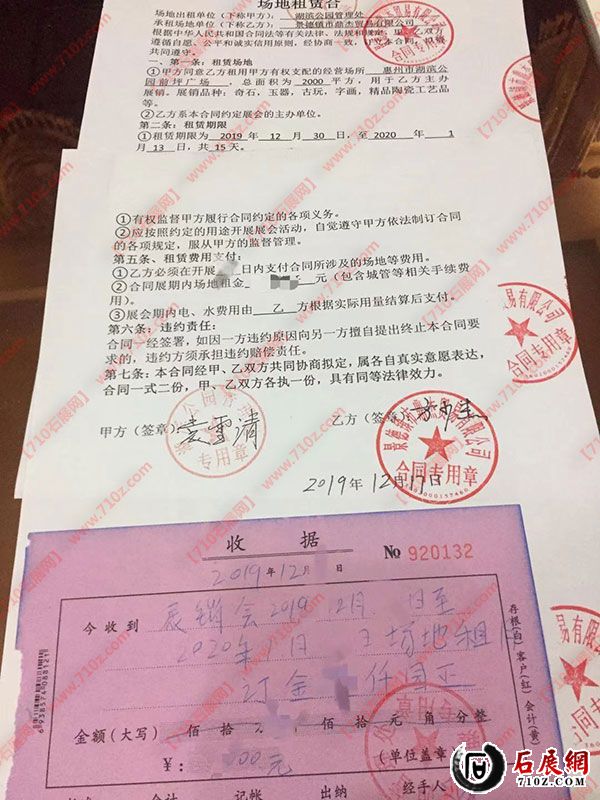 场地租赁合
场地出租单位（下称甲方）：湖滨公园管理处
承租场地单位（下称乙方）：景德镇市鼎杰贸易有限公司
根据中华人民共和国合同法等有关法律、法规的规定，甲乙双方
遵循自愿、公平和诚实信用原则，经协商一致，订立本合同，以资
共同遵守。
一、第一条：租赁场地
①甲方同意乙方租用甲方有权支配的经营场所 惠州市湖滨公
园前坪广场 ，总面积为 2000 平方，用于乙方主办
展销。展销品种：奇石，玉器，古玩，字画，精品陶瓷工艺品
等。
②乙方系本合同约定展会的主办单位。
第二条：租赁期限
①租赁期限为 2019 年 12 月 30 日，至 2020 年 1
月 13 日，共 15 天。
①有权监督甲方履行合同约定的各项义务。
②应按照约定的用途开展展会活动，自觉遵守甲方依法制订合同
的各项规定，服从甲方的监督管理。
第五条、租赁费用支付：
①乙方必须在开展 日内支付合同所涉及的场地等费用。
②合同展期内场地租金 元（包含城管等相关手续费
用）。
③展会期内电、水费用由 乙 方根据实际用量结算后支付。
第六条：违约责任：
合同一经签署，如因一方违约原因向另一方擅自提出终止本合同要
求的，违约方须承担违约赔偿责任。
第七条：本合同经甲、乙双方共同协商拟定，属各自真实意愿表达，
合同一式二份，甲、乙双方各执一份，具有同等法律效力。
甲方（签章） 乙方（签章）
专用章
景德镇市鼎杰贸易有限公司
合同专用章
2019年12月17日
易有限公司
合同专用章
收据
2019年12月 日
№ 920132
今收到 展销会2019 12月 日至
2020年1月 场地租
订金 仟圆正
金额（大写） 佰 拾 佰 拾 元 角 分 整
¥： 00元 （单位盖章）
会计 记帐 出纳 经手人
存根(白) 客户(红) 会计(黄)
【710石展网】www.710z.com
石展網
710Z.COM